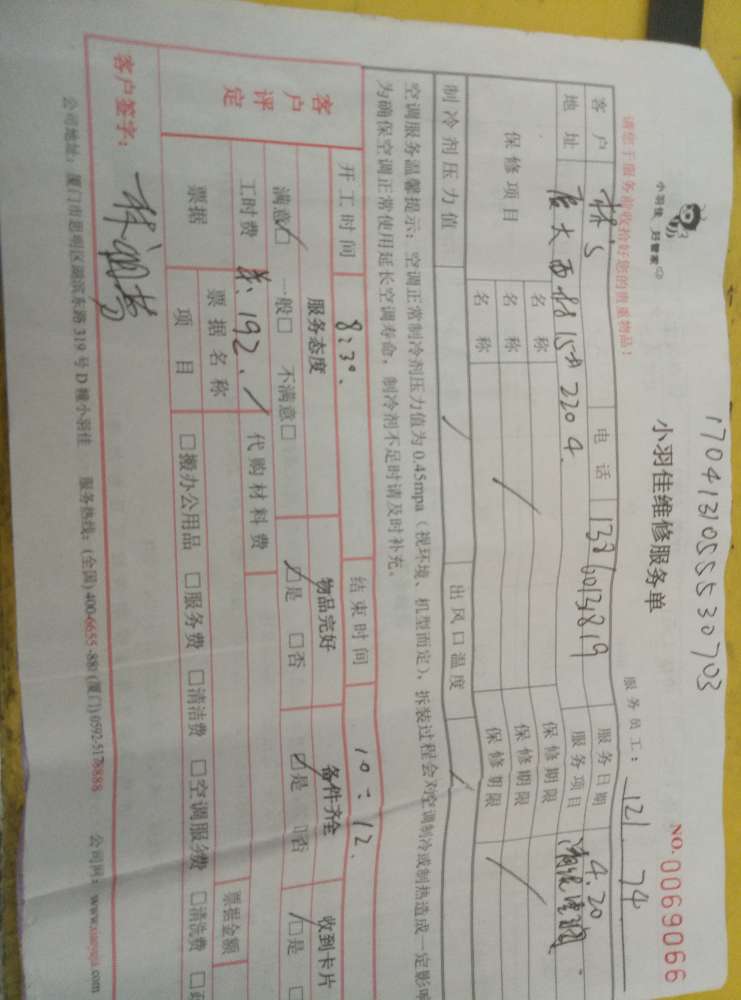 1704131055530703
小羽佳 好管家
小羽佳维修服务单
NO. 0069066
请您于服务前收拾好您的贵重物品！
服务员工： 121 74
客户 林's 电话 13860131819 服务日期 4.20
地址 厦大西村15# 220 4 服务项目 清洗空调
保修项目 名称 保修期限
名称 保修期限
名称 保修期限
制冷剂压力值 出风口温度
空调服务温馨提示：空调正常制冷剂压力值为 0.45mpa（视环境、机型而定）、拆装过程会对空调制冷或制热造成一定影响
为确保空调正常使用延长空调寿命，制冷剂不足时请及时补充。
开工时间 8:30. 结束时间 10:12.
客户评定 服务态度 物品完好 备件齐全 收到卡片
满意☑ 一般□ 不满意□ ☑是 □否 ☑是 □否 ☑是
工时费 192. 代购材料费
票据 票据名称 票据金额
项目 □搬办公用品 □服务费 □清洁费 □空调服务费 □清洗费
客户签字：
公司地址：厦门市思明区湖滨东路 319 号 D 幢小羽佳 服务热线：(全国)400-6655-888 (厦门)0592-5178888 公司网：www.xiaoyujia.com